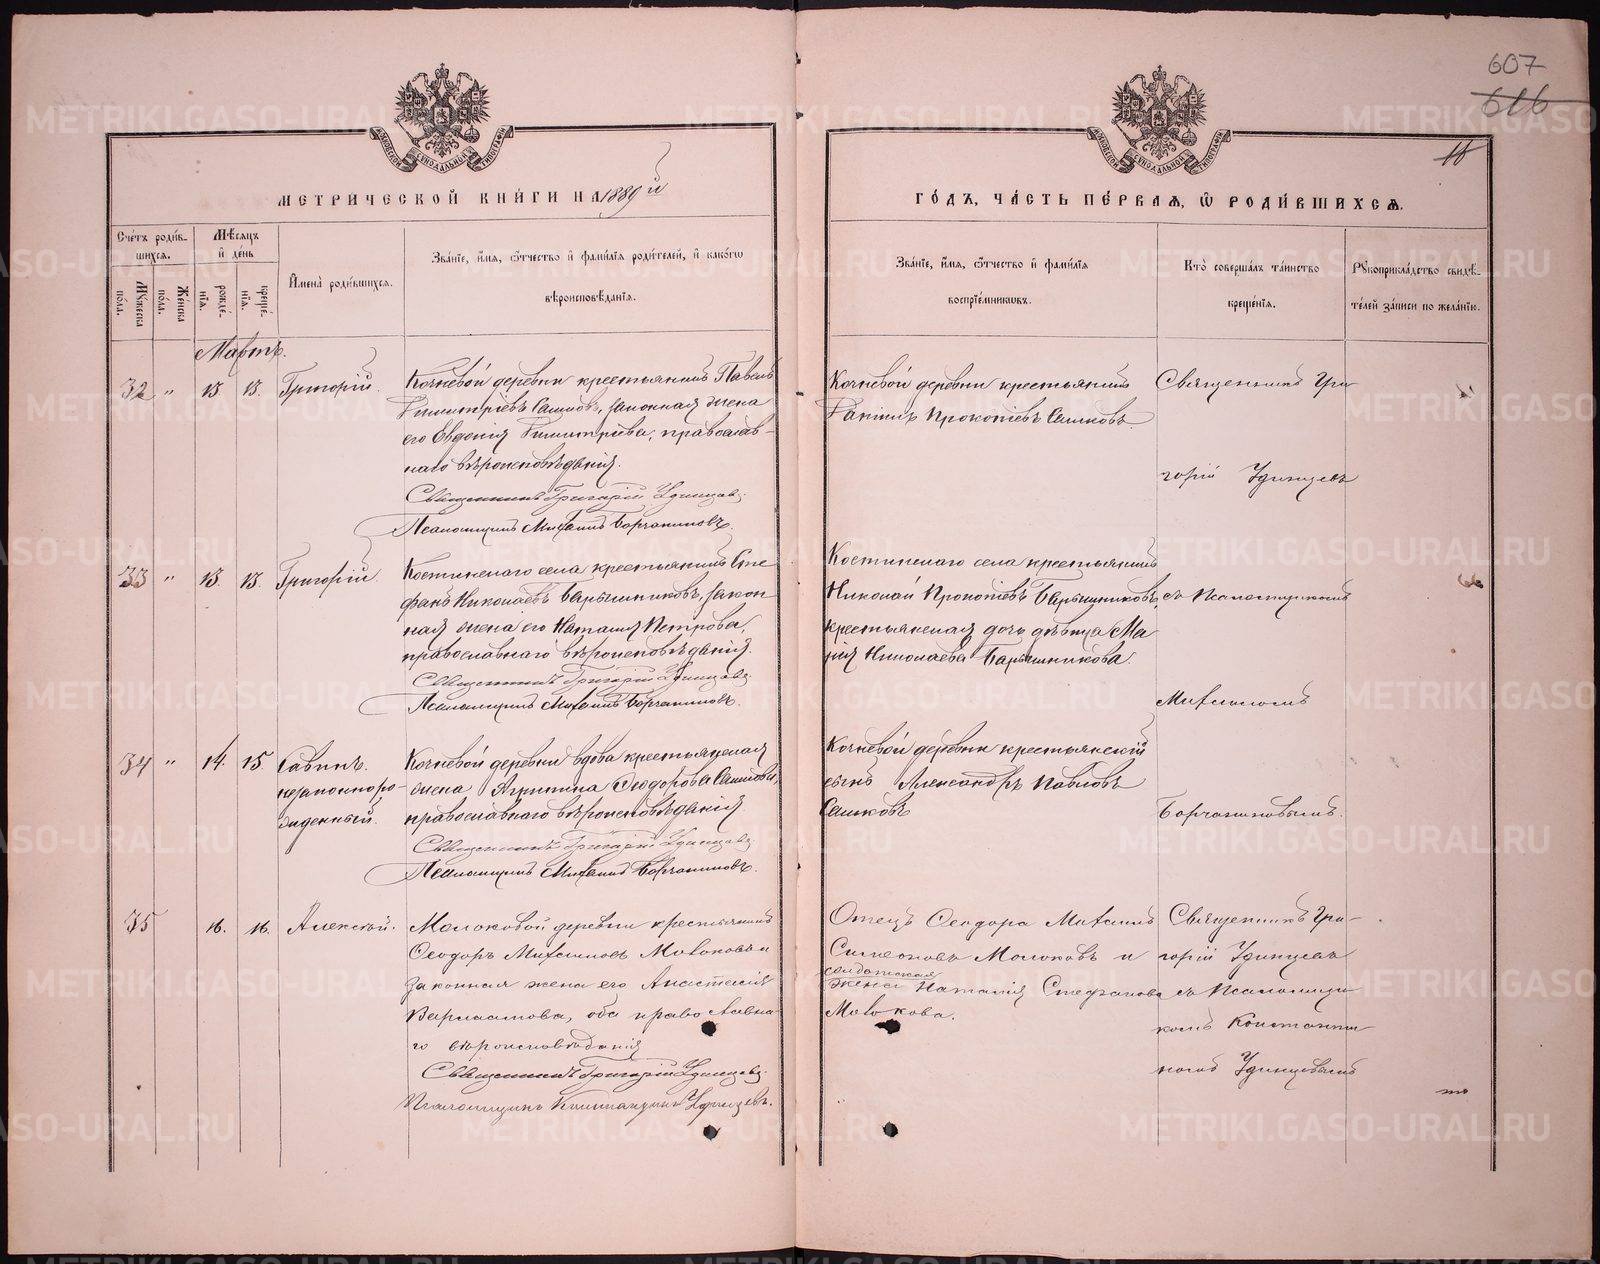 607
616
16
МОСКОВСКОЙ СѴНОДАЛЬНОЙ ТИПОГРАФІИ
МОСКОВСКОЙ СѴНОДАЛЬНОЙ ТИПОГРАФІИ
МЕТРИ́ЧЕСКОЙ КНИ́ГИ НА 1889й
ГО́ДЪ, ЧА́СТЬ ПЕ́РВАѦ, Ѡ РОДИ́ВШИХСѦ.
Сче́тъ роди́в-
шихсѧ.
Мꙋжеска
по́ла.
Же́нска
по́ла.
Мѣ́сѧцъ
и҆ де́нь
рожде́-
нїѧ.
креще́-
нїѧ.
И҆мена̀ роди́вшихсѧ.
Зва́нїе, и҆́мѧ, ѻ҆́тчество и҆ фами́лїѧ роди́телей, и҆ како́гѡ
вѣроисповѣ́данїѧ.
Зва́нїе, и҆́мѧ, ѻ҆́тчество и҆ фами́лїѧ
воспрїе́мникѡвъ.
Кто̀ соверша́лъ та́инство
креще́нїѧ.
Рꙋкоприкла́дство свидѣ́-
телей за́писи по жела́нїю.
Мартъ.
32 " 13 13. Григорій.
Кочневой деревни крестьянинъ Павелъ
Димитріевъ Сашковъ, законная жена
его Евдокія Димитріева, православ-
наго вѣроисповѣданія.
Священникъ Григорій Удинцевъ.
Псаломщикъ Михаилъ Борчаниновъ.
Кочневой деревни крестьянинъ
Даніилъ Прокопіевъ Сашковъ.
Священникъ Гри
горій Удинцевъ
33 " 13. 13. Григорій.
Костинскаго села крестьянинъ Сте
фанъ Николаевъ Барышниковъ, закон
ная жена его Наталія Петрова,
православнаго вѣроисповѣданія.
Священникъ Григорій Удинцевъ
Псаломщикъ Михаилъ Борчаниновъ.
Костинскаго села крестьянинъ
Николай Прокопіевъ Барышниковъ,
крестьянская дочь дѣвица Ма
рія Николаева Барышникова.
съ Псаломщикомъ
Михаиломъ
34 " 14. 15. Саввинъ.
незаконноро-
жденный.
Кочневой деревни вдова крестьянская
жена Агрипина Ѳеодорова Сашкова,
православнаго вѣроисповѣданія.
Священникъ Григорій Удинцевъ
Псаломщикъ Михаилъ Борчаниновъ.
Кочневой деревни крестьянскій
сынъ Александръ Павловъ
Сашковъ
Борчаниновымъ.
35 16. 16. Алексѣй.
Молоковой деревни крестьянинъ
Ѳеодоръ Михаиловъ Молоковъ и
законная жена его Анастасія
Варлаамова, оба православна-
го вѣроисповѣданія
Священникъ Григорій Удинцевъ.
Псаломщикъ Константинъ Удинцевъ.
Отецъ Ѳеодора Михаилъ
Симеоновъ Молоковъ и
солдатская
жена Наталія Стефанова
Молокова.
Священникъ Гри-
горій Удинцевъ
съ Псаломщи
комъ Константи
номъ Удинцевымъ